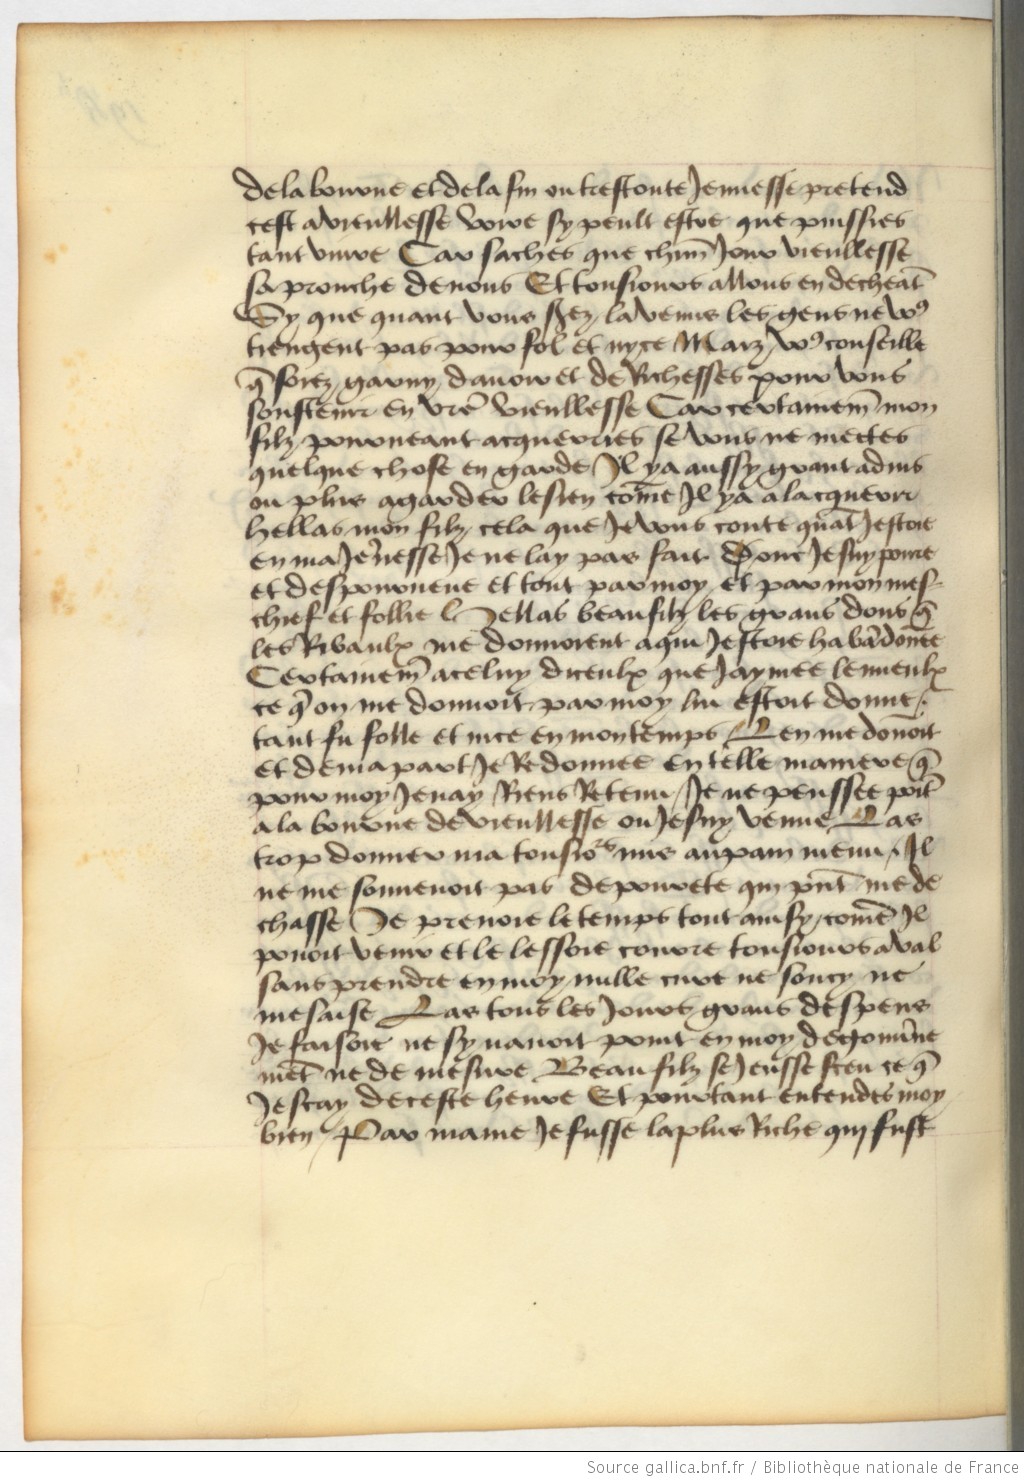 de la bourne et de la fin ou trestoute Jennesse pretend
cest a vieullesse voire sy peult estre que puissies
tant vivre Car saches que chūn Jour vieullesse
sa prouche de nous Et tousiours allons en decheāt
Sy que quant vous serez la venus les gens ne vꝰ
tiengent pas pour fol et nyce Marz vꝰ conseille
q̄ soiez garny dauoir et de Richesses pour vous
soustenir en vr̄e vieullesse Car certainem̄ mon
filz pourneant acquerries se vous ne mectes
quelque chose en garde Il ya aussy grant aduis
ou plus a garder le sien com̄e Il ya a lacquerir
hellas mon filz cela que Je vous conte quāt Jestoie
en ma Je͂nesse Je ne lay pas fait Donc Je suy poure
et despourueue et tout par moy et par mon mes-
chief et follie Hellas beau filz les grans dons q̄
les Ribaulx me donnoient a qui Jestoie habādōnee
Certainem̄ a celuy diceulx que Jaymee le mieulx
ce q̄ on me donnoit par moy lui estoit donne
tant fu folle et nice en mon temps Len me dōnoit
et de ma part Je Redonnee en telle maniere q̄
pour moy Je nay Riens Retenu Je ne penssee poīt
a la bourne de vieullesse ou Je suy venue Las
trop donner ma tousioʳˢ mis au pain menu Il
ne me souuenoit pas de pourete qui pn̄t me de
chasse Je prenoie le temps tout ainsy com̄e Il
pouoit venir et le lessoie courre tousiours aval
sans prendre en moy nulle cure ne soucy ne
mesaise Las tous les Jours grans despens
Je faisoie ne sy nauoit point en moy de gouu̅ne
mēt ne de mesure Beau filz se Jeusse sceu ce q̄
Je scay de ceste heure Et pourtant entendes moy
bien Par mame Je fusse la plus Riche qui fust
Source gallica.bnf.fr / Bibliothèque nationale de France